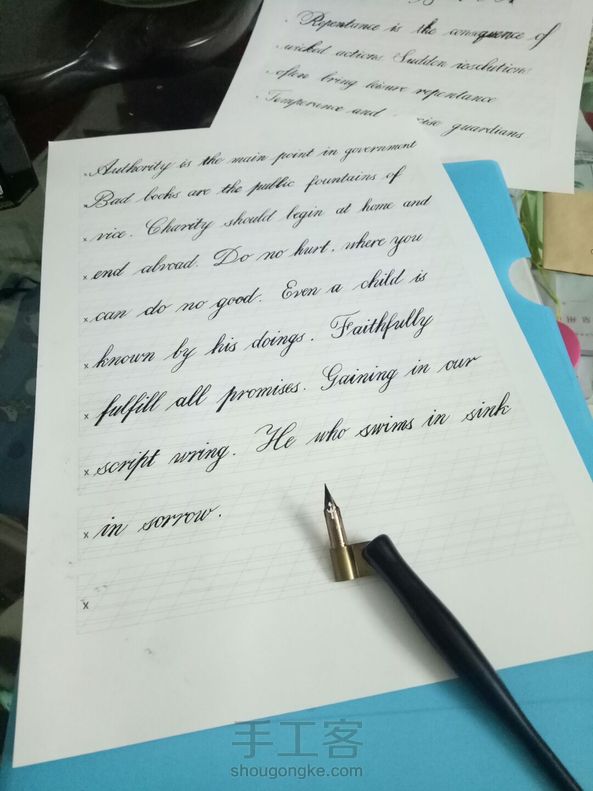 Repentance is the consquence of
wicked actions. Sudden resolutions
often bring leisure repentance
Temperance and guardians
Authority is the main point in government
Bad books are the public fountains of
vice. Charity should begin at home and
end abroad. Do no hurt, where you
can do no good. Even a child is
known by his doings. Faithfully
fulfill all promises. Gaining in our
script wring. He who swims in sink
in sorrow.
手工客
shougongke.com